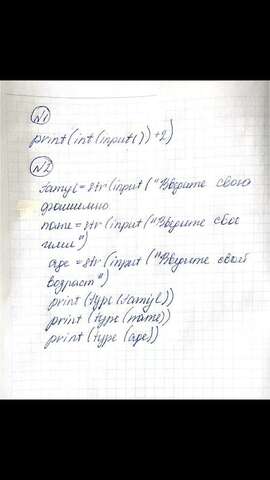 №1
print(int(input())+2)
№2
famyl=str(input("Введите свою
фамилию
name=str(input("Введите свое
имя")
age=str(input("Введите свой
возраст")
print(type(famyl))
print(type(name))
print(type(age))